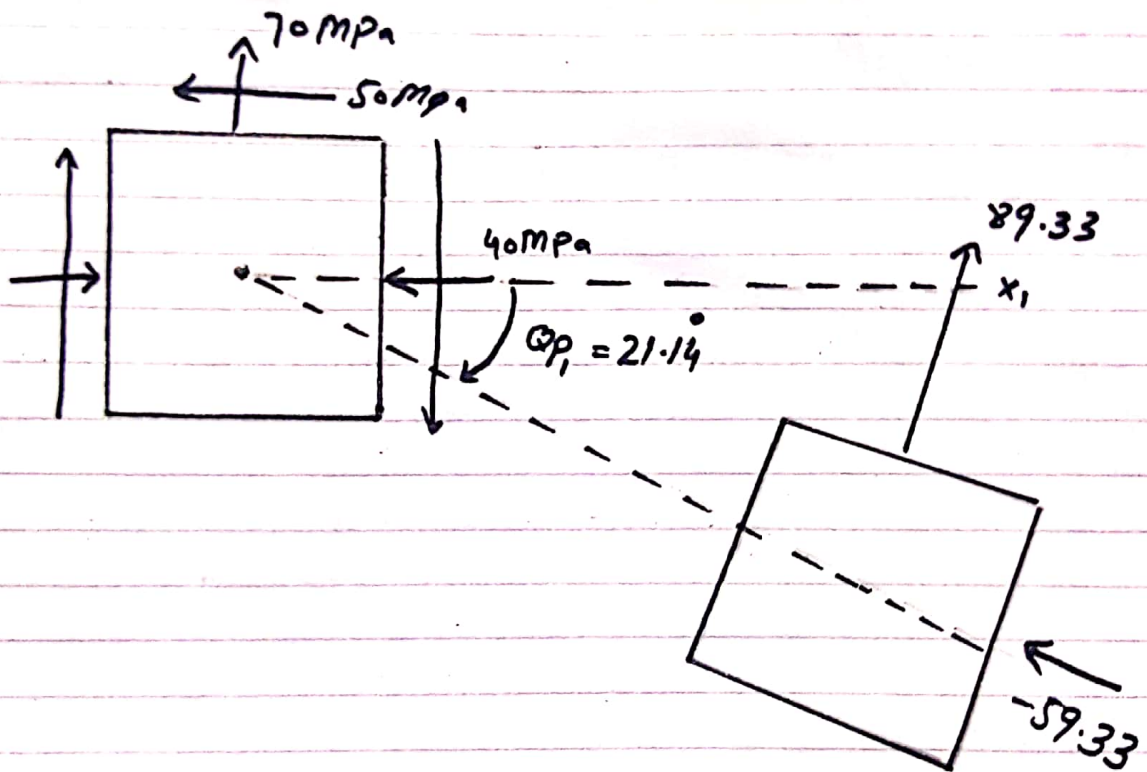 70 MPa
50 Mpa
40 MPa
89.33
x₁
Qp₁ = 21.14°
-59.33